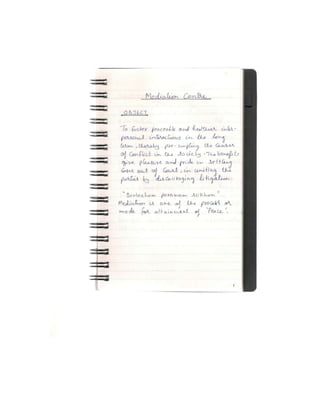 Mediation Centre
OBJECT
To foster peaceable and healthier inter-
personal interactions in the long
term, thereby pre-empting the causes
of conflict in the society. The benefits
give pleasure and pride in settling
cases out of Court, in uniting the
parties by discouraging litigation.
Mediation is one of the process or
mode for attainment of "Peace".